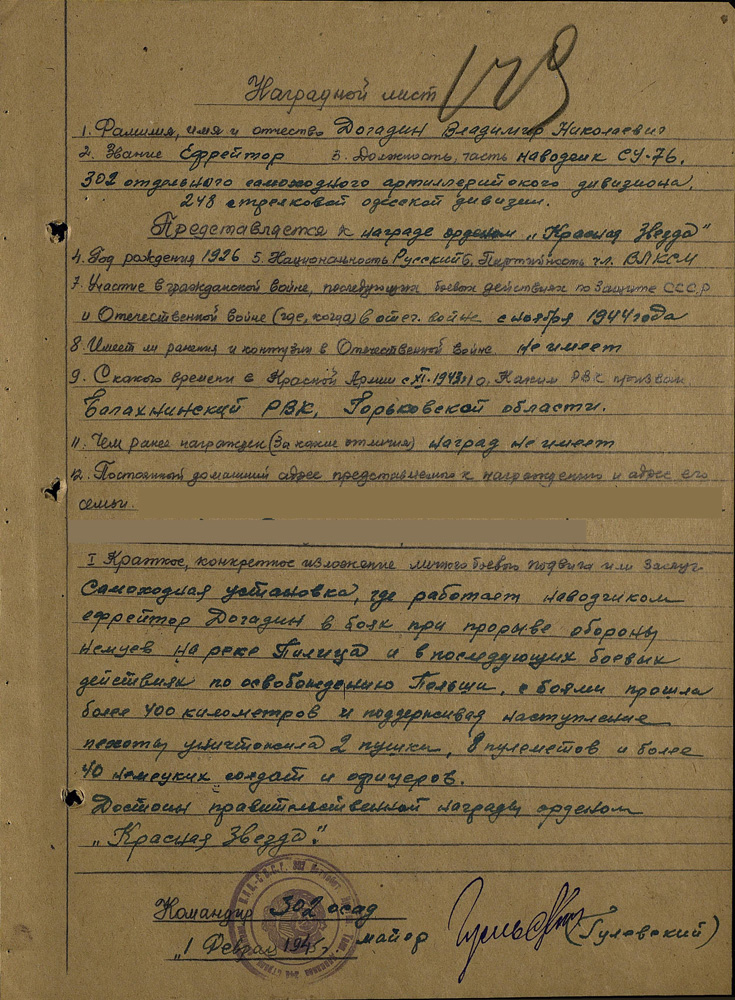 179
Наградной лист
1. Фамилия, имя и отчество Догадин Владимир Николаевич
2. Звание Ефрейтор 3. Должность, часть наводчик СУ-76,
302 отдельного самоходного артиллерийского дивизиона,
248 стрелковой одесской дивизии.
Представляется к награде орденом „Красная Звезда"
4. Год рождения 1926 5. Национальность Русский 6. Партийность чл. ВЛКСМ
7. Участие в гражданской войне, последующих боевых действиях по защите СССР
и Отечественной войне (где, когда) в отеч. войне с ноября 1944 года
8. Имеет ли ранения и контузии в Отечественной войне не имеет
9. С какого времени в Красной Армии с XI.1943 10. Каким РВК призван
Балахнинский РВК, Горьковской области.
11. Чем ранее награжден (за какие отличия) наград не имеет
12. Постоянный домашний адрес представляемого к награждению и адрес его
семьи.
I Краткое, конкретное изложение личного боевого подвига или заслуг.
Самоходная установка, где работает наводчиком
ефрейтор Догадин в боях при прорыве обороны
немцев на реке Пилица и в последующих боевых
действиях по освобождению Польши, с боями прошла
более 400 километров и поддерживая наступление
пехоты уничтожила 2 пушки, 8 пулеметов и более
40 немецких солдат и офицеров.
Достоин правительственной награды орденом
„Красная Звезда".
Командир 302 осад
майор (Гулевский)
„1 Февраля 1945 г.